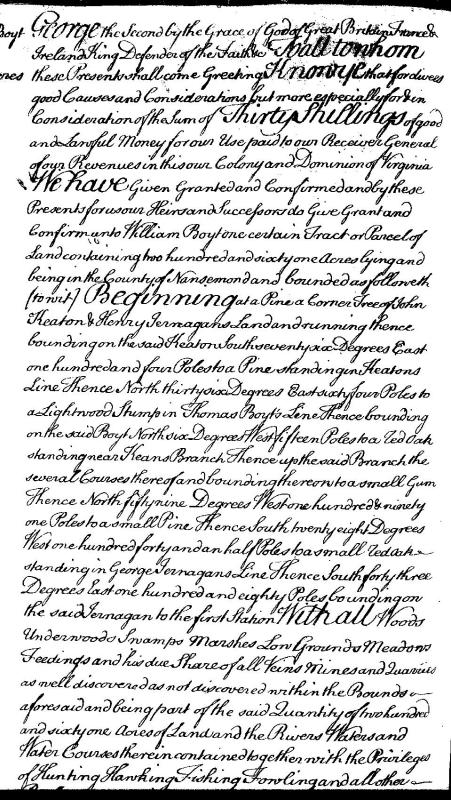 Boyt George the Second by the Grace of God of Great Britain France &
Ireland King Defender of the Faith &c To all to whom
these Presents shall come Greeting Know ye that for divers
good Causes and Considerations but more especially for & in
Consideration of the Sum of Thirty Shillings of good
and Lawful Money for our Use paid to our Receiver General
of our Revenues in this our Colony and Dominion of Virginia
We have Given Granted and Confirmed and by these
Presents for us our Heirs and Successors do Give Grant and
Confirm unto William Boyt one certain Tract or Parcel of
Land containing two hundred and sixty one Acres lying and
being in the County of Nansemond and bounded as followeth
(to wit) Beginning at a Pine a Corner Tree of John
Keaton & Henry Jernagans Land and running thence
bounding on the said Keaton South seventy six Degrees East
one hundred and four Poles to a Pine standing in Keatons
Line Thence North thirty six Degrees East sixty four Poles to
a Lightwood Stump in Thomas Boyt's Line Thence bounding
on the said Boyt North six Degrees West fifteen Poles to a Red Oak
standing near Keans Branch Thence up the said Branch the
several Courses thereof and bounding thereon to a small Gum
Thence North fifty nine Degrees West one hundred & ninety
one Poles to a small Pine Thence South twenty eight Degrees
West one hundred forty and an half Poles to a small Red oak
standing in George Jernagans Line Thence South forty three
Degrees East one hundred and eighty Poles bounding on
the said Jernagan to the first Station With all Woods
Underwoods Swamps Marshes Low Grounds Meadows
Feedings and his due Share of all Veins Mines and Quarries
as well discovered as not discovered within the Bounds
aforesaid and being part of the said Quantity of two hundred
and sixty one Acres of Land and the Rivers Waters and
Water Courses therein contained together with the Privileges
of Hunting Hawking Fishing Fowling and all other